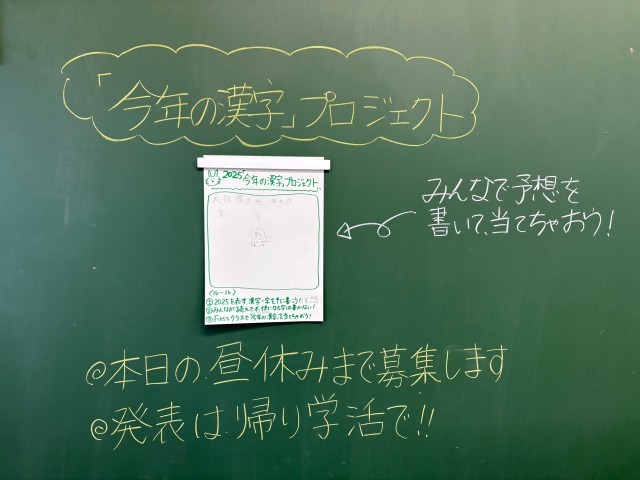 「今年の漢字」プロジェクト
2025「今年の漢字」プロジェクト
みんなで予想を
書いて、当てちゃおう!
<ルール>
①2025を表す漢字一字を
③
◎本日の昼休みまで募集します
◎発表は帰り学活で!!